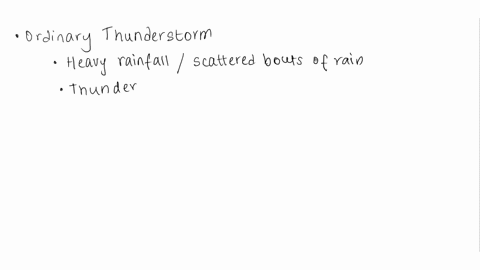 • Ordinary Thunderstorm
• Heavy rainfall / scattered bouts of rain
• Thunder